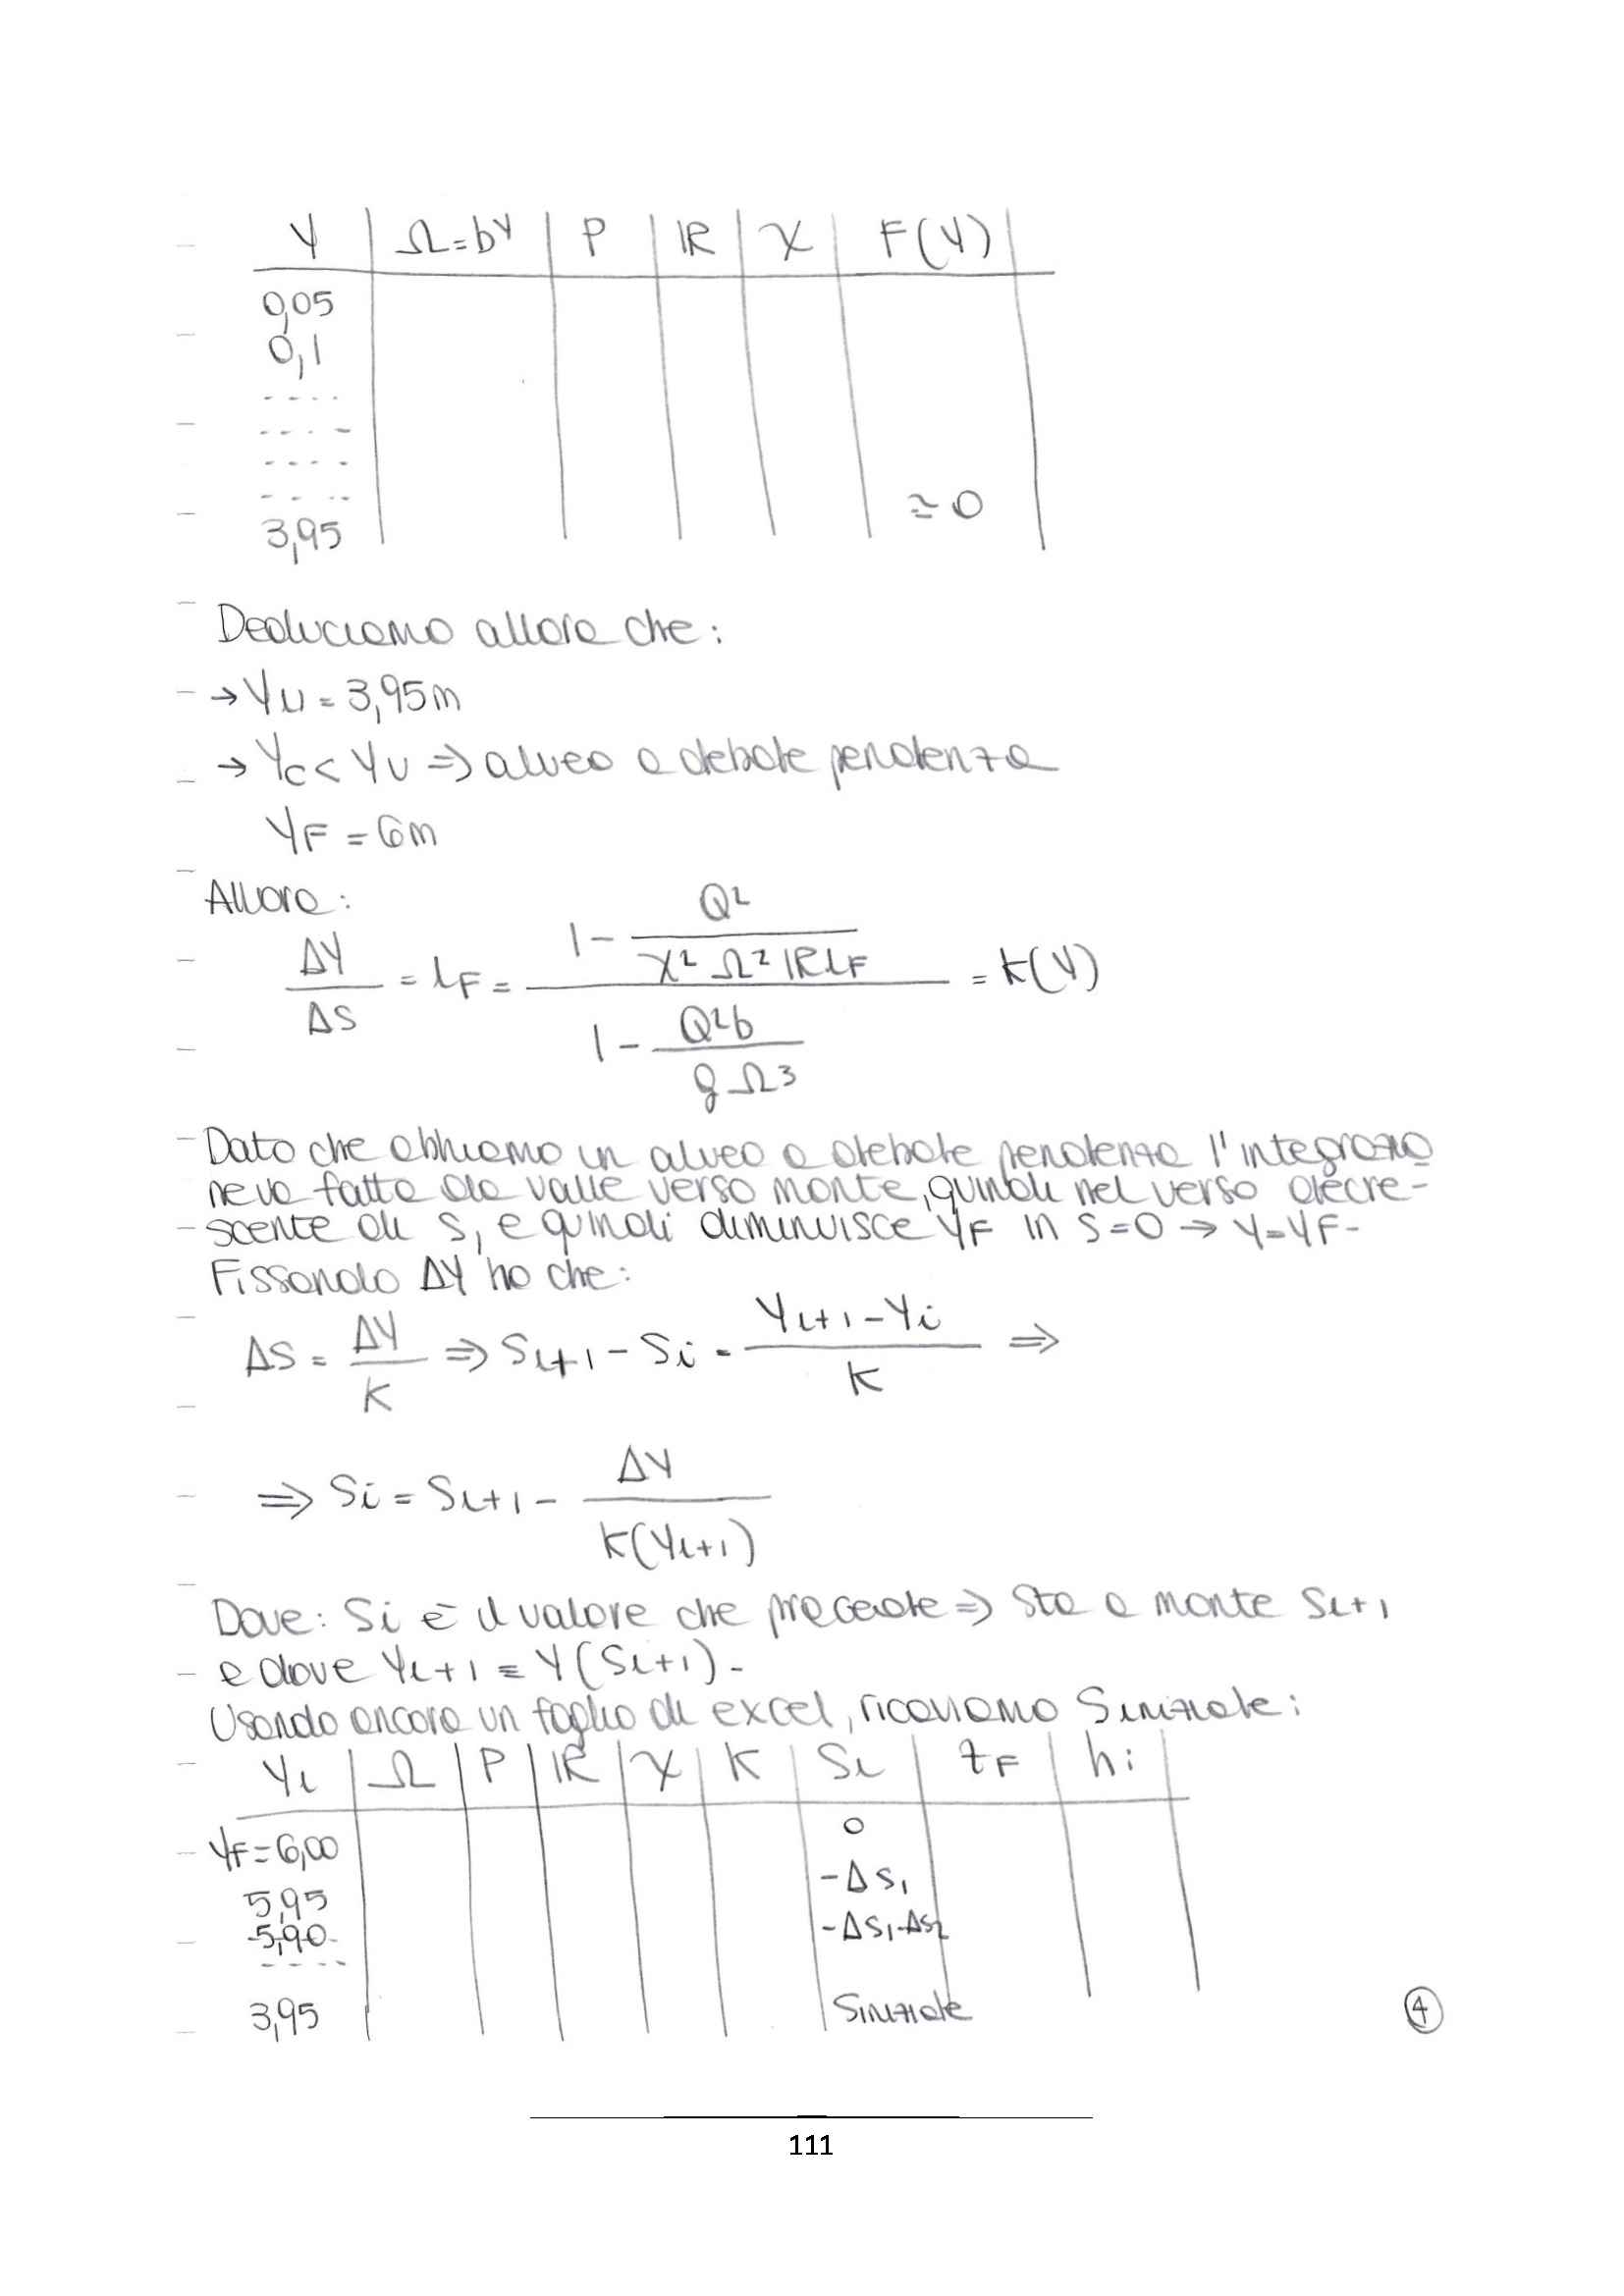 Y | Ω=bY | P | IR | χ | F(Y)
0,05
0,1
- - - -
- - - -
- - - -
- - - - ≃ 0
3,95
Deduciamo allora che:
→ Yu = 3,95m
→ Yc < Yu ⇒ alveo a debole pendenza
YF = 6m
Allora:
ΔY/ΔS = iF = (1 - Q²/(χ² Ω² IR iF)) / (1 - Q²b/(g Ω³)) = K(Y)
Dato che abbiamo un alveo a debole pendenza l'integrazio
ne va fatta da valle verso monte, quindi nel verso decre-
scente di S, e quindi diminuisce YF in S=0 → Y=YF-
Fissando ΔY ho che:
ΔS = ΔY/K ⇒ Si+1 - Si = (Yi+1 - Yi)/K ⇒
⇒ Si = Si+1 - ΔY/K(Yi+1)
Dove: Si è il valore che precede ⇒ Sta a monte Si+1
e dove Yi+1 = Y(Si+1)-
Usando ancora un foglio di excel, ricaviamo Siniziale:
Yi | Ω | P | IR | χ | K | Si | zF | hi
YF=6,00 0
5,95 -ΔS1
5,90 -ΔS1-ΔS2
- - - -
3,95 Siniziale
4
111